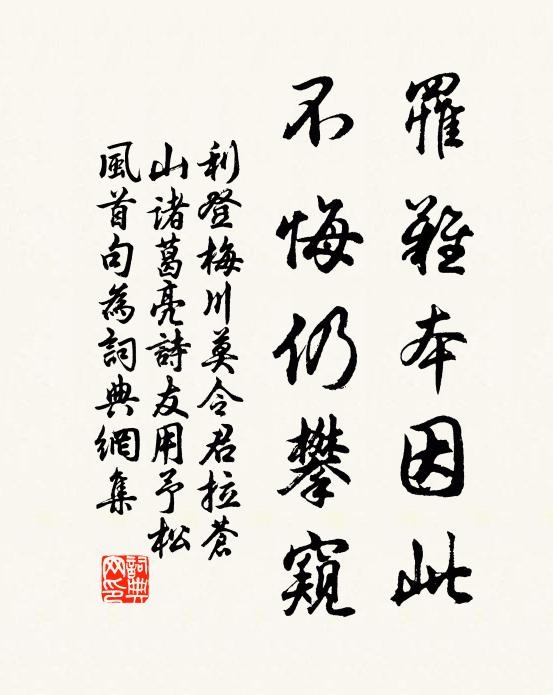 罹難本因此
不悔仍攀窺
利登梅川莫令君拉蒼
山诸葛亮詩友用予松
風首句為詞典網集
詞典
网印